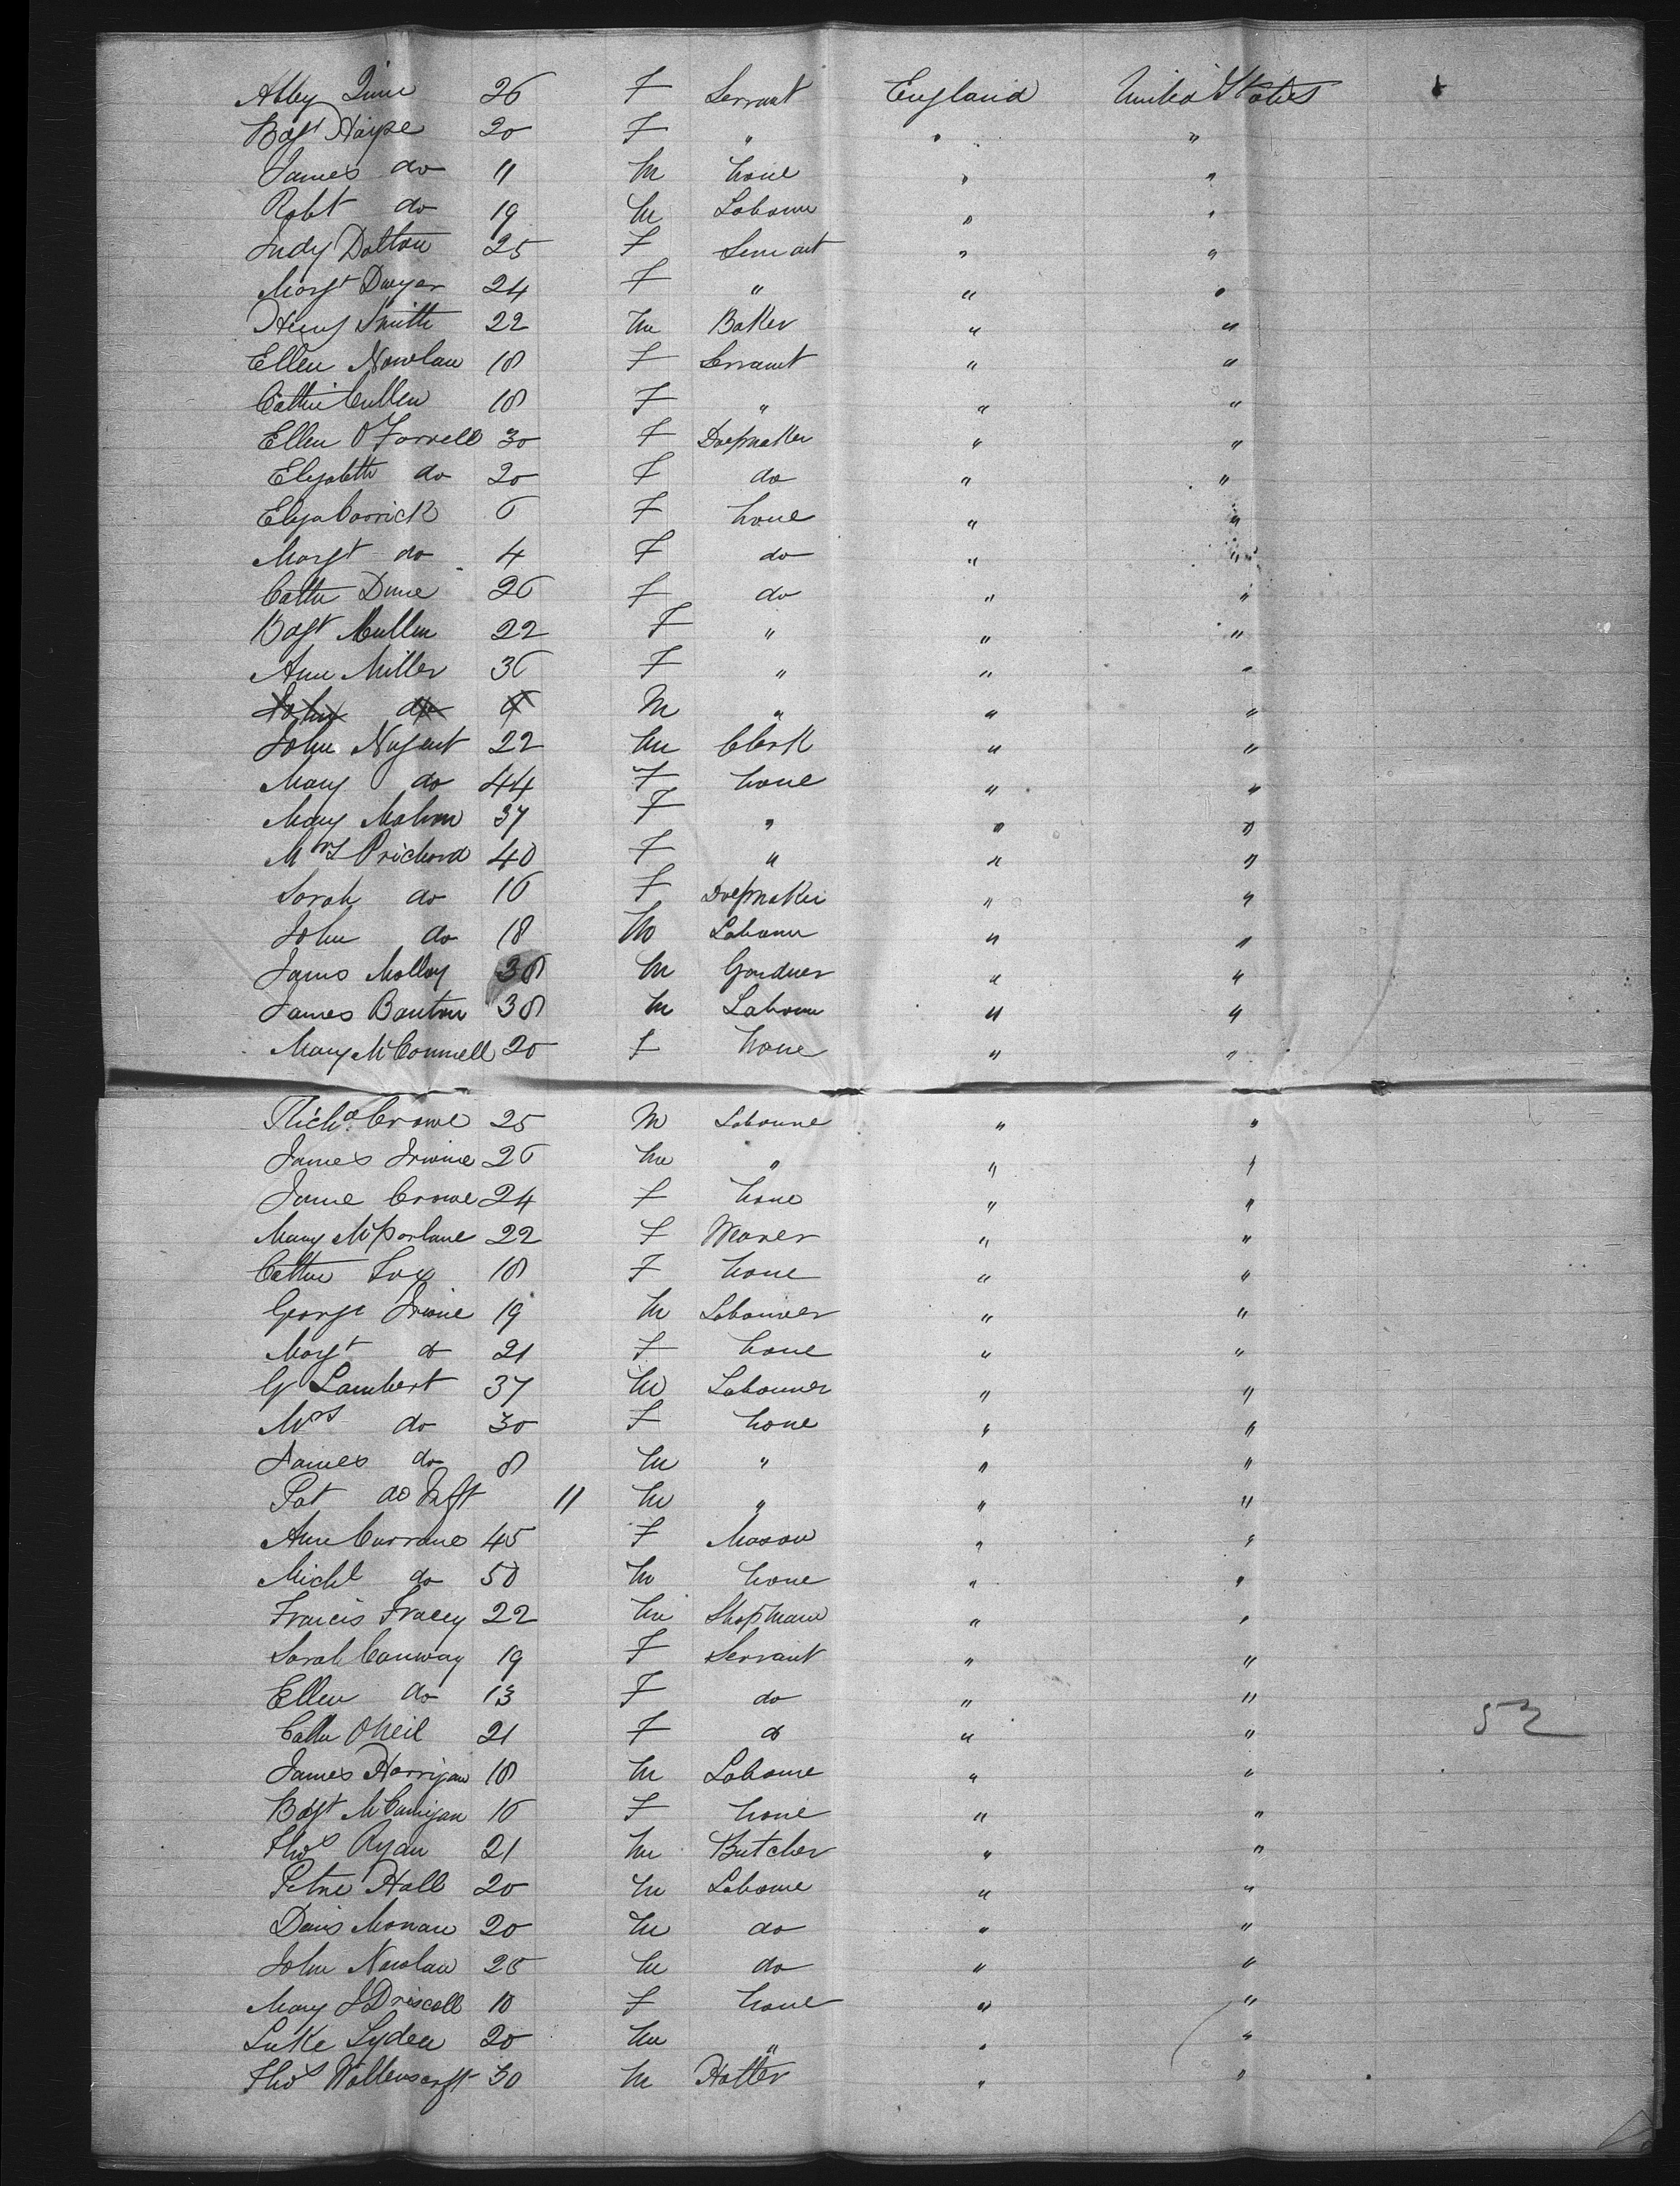 Abby Quin 26 F Servant England United States
Bdgt Harpe 20 F " " "
James do 11 M None " "
Robt do 19 M Labourer " "
Judy Dalton 25 F Servant " "
Margt Dwyer 24 F " " "
Henry Smith 22 M Baker " "
Ellen Nowlan 18 F Servant " "
Cathe Cullen 18 F " " "
Ellen O'Farrell 30 F Dressmaker " "
Elizabeth do 20 F do " "
Eliza Carrick 6 F None " "
Margt do 4 F do " "
Cathe Dunne 26 F do " "
Bdgt Cullen 22 F " " "
Ann Miller 36 F " " "
John do 6 M " " "
John Nugent 22 M Clerk " "
Mary do 44 F None " "
Mary Mahon 37 F " " "
Mrs Prichard 40 F " " "
Sarah do 16 F Dressmaker " "
John do 18 M Labourer " "
James Molloy 38 M Gardner " "
James Banton 38 M Labourer " "
Mary McConnell 20 F None " "
Richd. Crowe 25 M Labourer " "
James Irvine 26 M " " "
Jane Crowe 24 F None " "
Mary McParlane 22 F Weaver " "
Cathe Fox 18 F None " "
George Irvine 19 M Labourer " "
Margt do 21 F None " "
G Lambert 37 M Labourer " "
Mrs do 30 F None " "
James do 8 M " " "
Pat do Inft 11 M " " "
Ann Currane 45 F Mason " "
Michl do 50 M None " "
Francis Tracey 22 M Shopman " "
Sarah Conway 19 F Servant " "
Ellen do 13 F do " "
Cathe O'Neil 21 F do " " 52
James Horrigan 18 M Labourer " "
Bdgt McCanigan 16 F None " "
Thos Ryan 21 M Butcher " "
Peter Hall 20 M Labourer " "
Denis Monan 20 M do " "
John Nowlan 25 M do " "
Mary J Driscoll 10 F None " "
Luke Lyden 20 M " " "
Thos 30 M Hatter " "